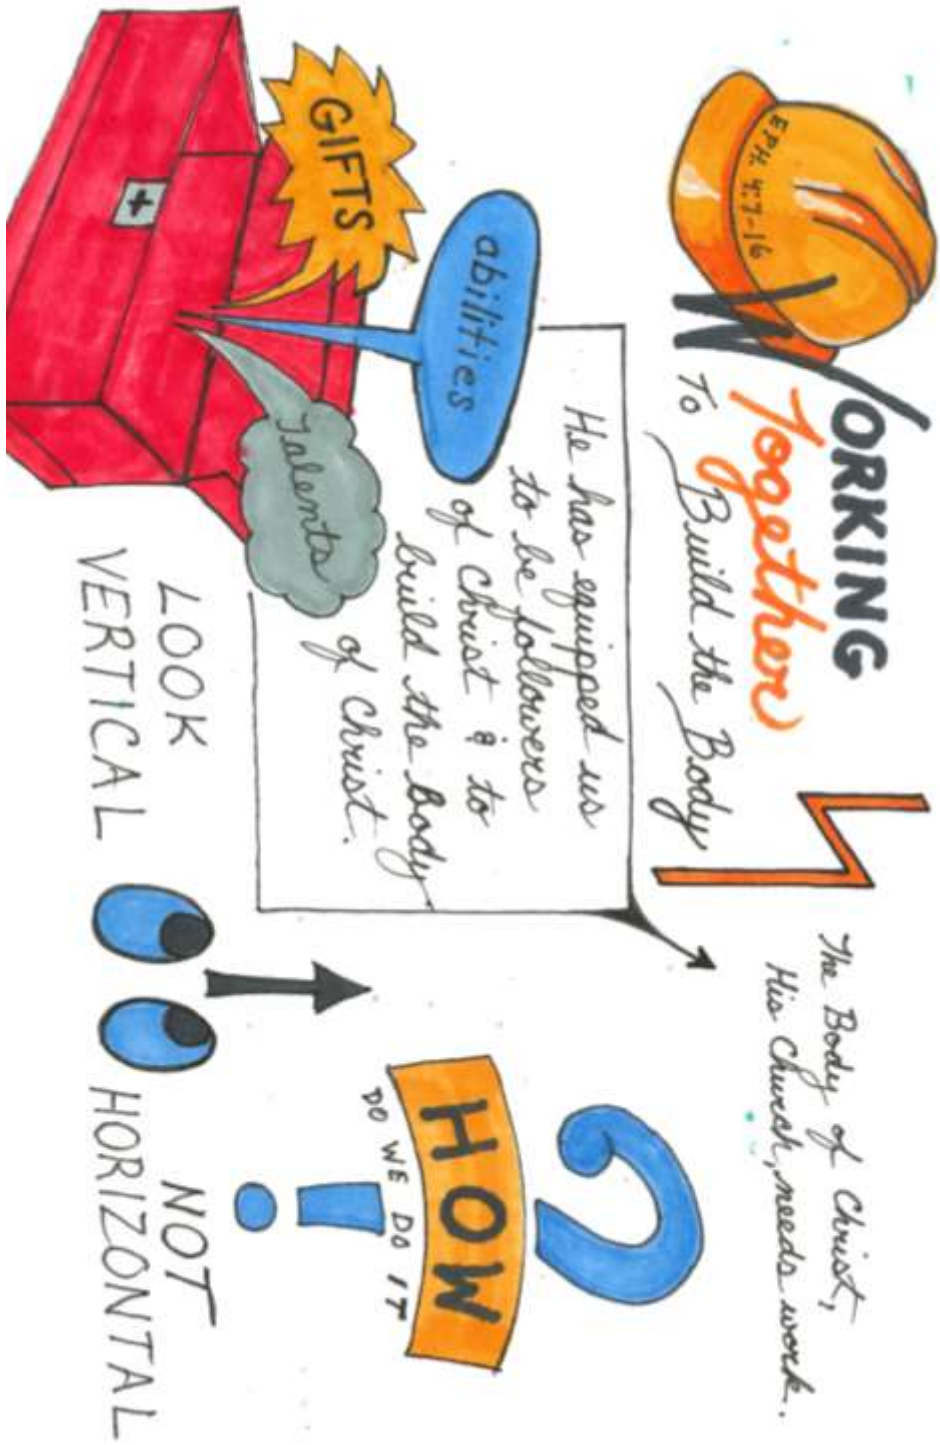 EPH. 4:7-16
WORKING
Together
To Build the Body
The Body of Christ,
His Church, needs work.
He has equipped us
to be followers
of Christ & to
build the body
of Christ.
GIFTS
abilities
Talents
HOW
DO WE DO IT
LOOK
VERTICAL
NOT
HORIZONTAL